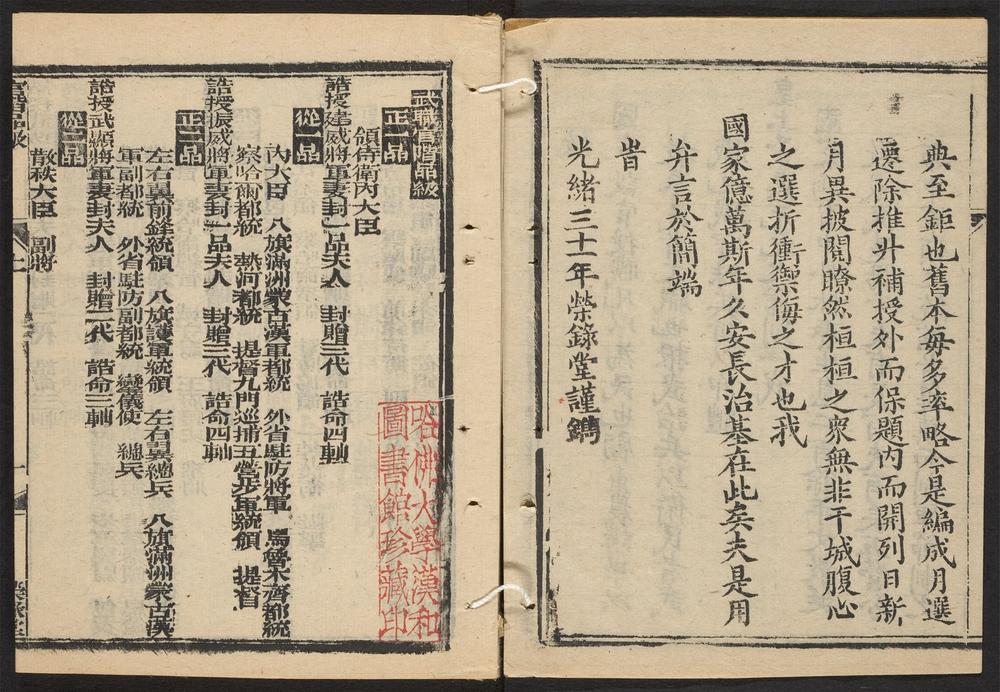 典至鉅也舊本每多率略今是編成月選
遷除推升補授外而保題內而開列日新
月異披閱瞭然桓桓之衆無非干城腹心
之選折衝禦侮之才也我
國家億萬斯年久安長治基在此矣夫是用
弁言於簡端
旹
光緒三十一年榮錄堂謹鐫
武職官階品級
正一品
領侍衛內大臣
誥授建威將軍妻封一品夫人 封贈三代 誥命四軸
從一品
內大臣 八旗滿洲蒙古漢軍都統 外省駐防將軍 烏魯木齊都統
察哈爾都統 熱河都統 提督九門巡捕五營步軍統領 提督
誥授振威將軍妻封一品夫人 封贈三代 誥命四軸
正二品
左右翼前鋒統領 八旗護軍統領 左右翼總兵 八旗滿洲蒙古漢
軍副都統 外省駐防副都統 鑾儀使 總兵
誥授武顯將軍妻封夫人 封贈二代 誥命三軸
從二品
散秩大臣 副將
官階品級
哈佛大學漢和
圖書館珍藏印